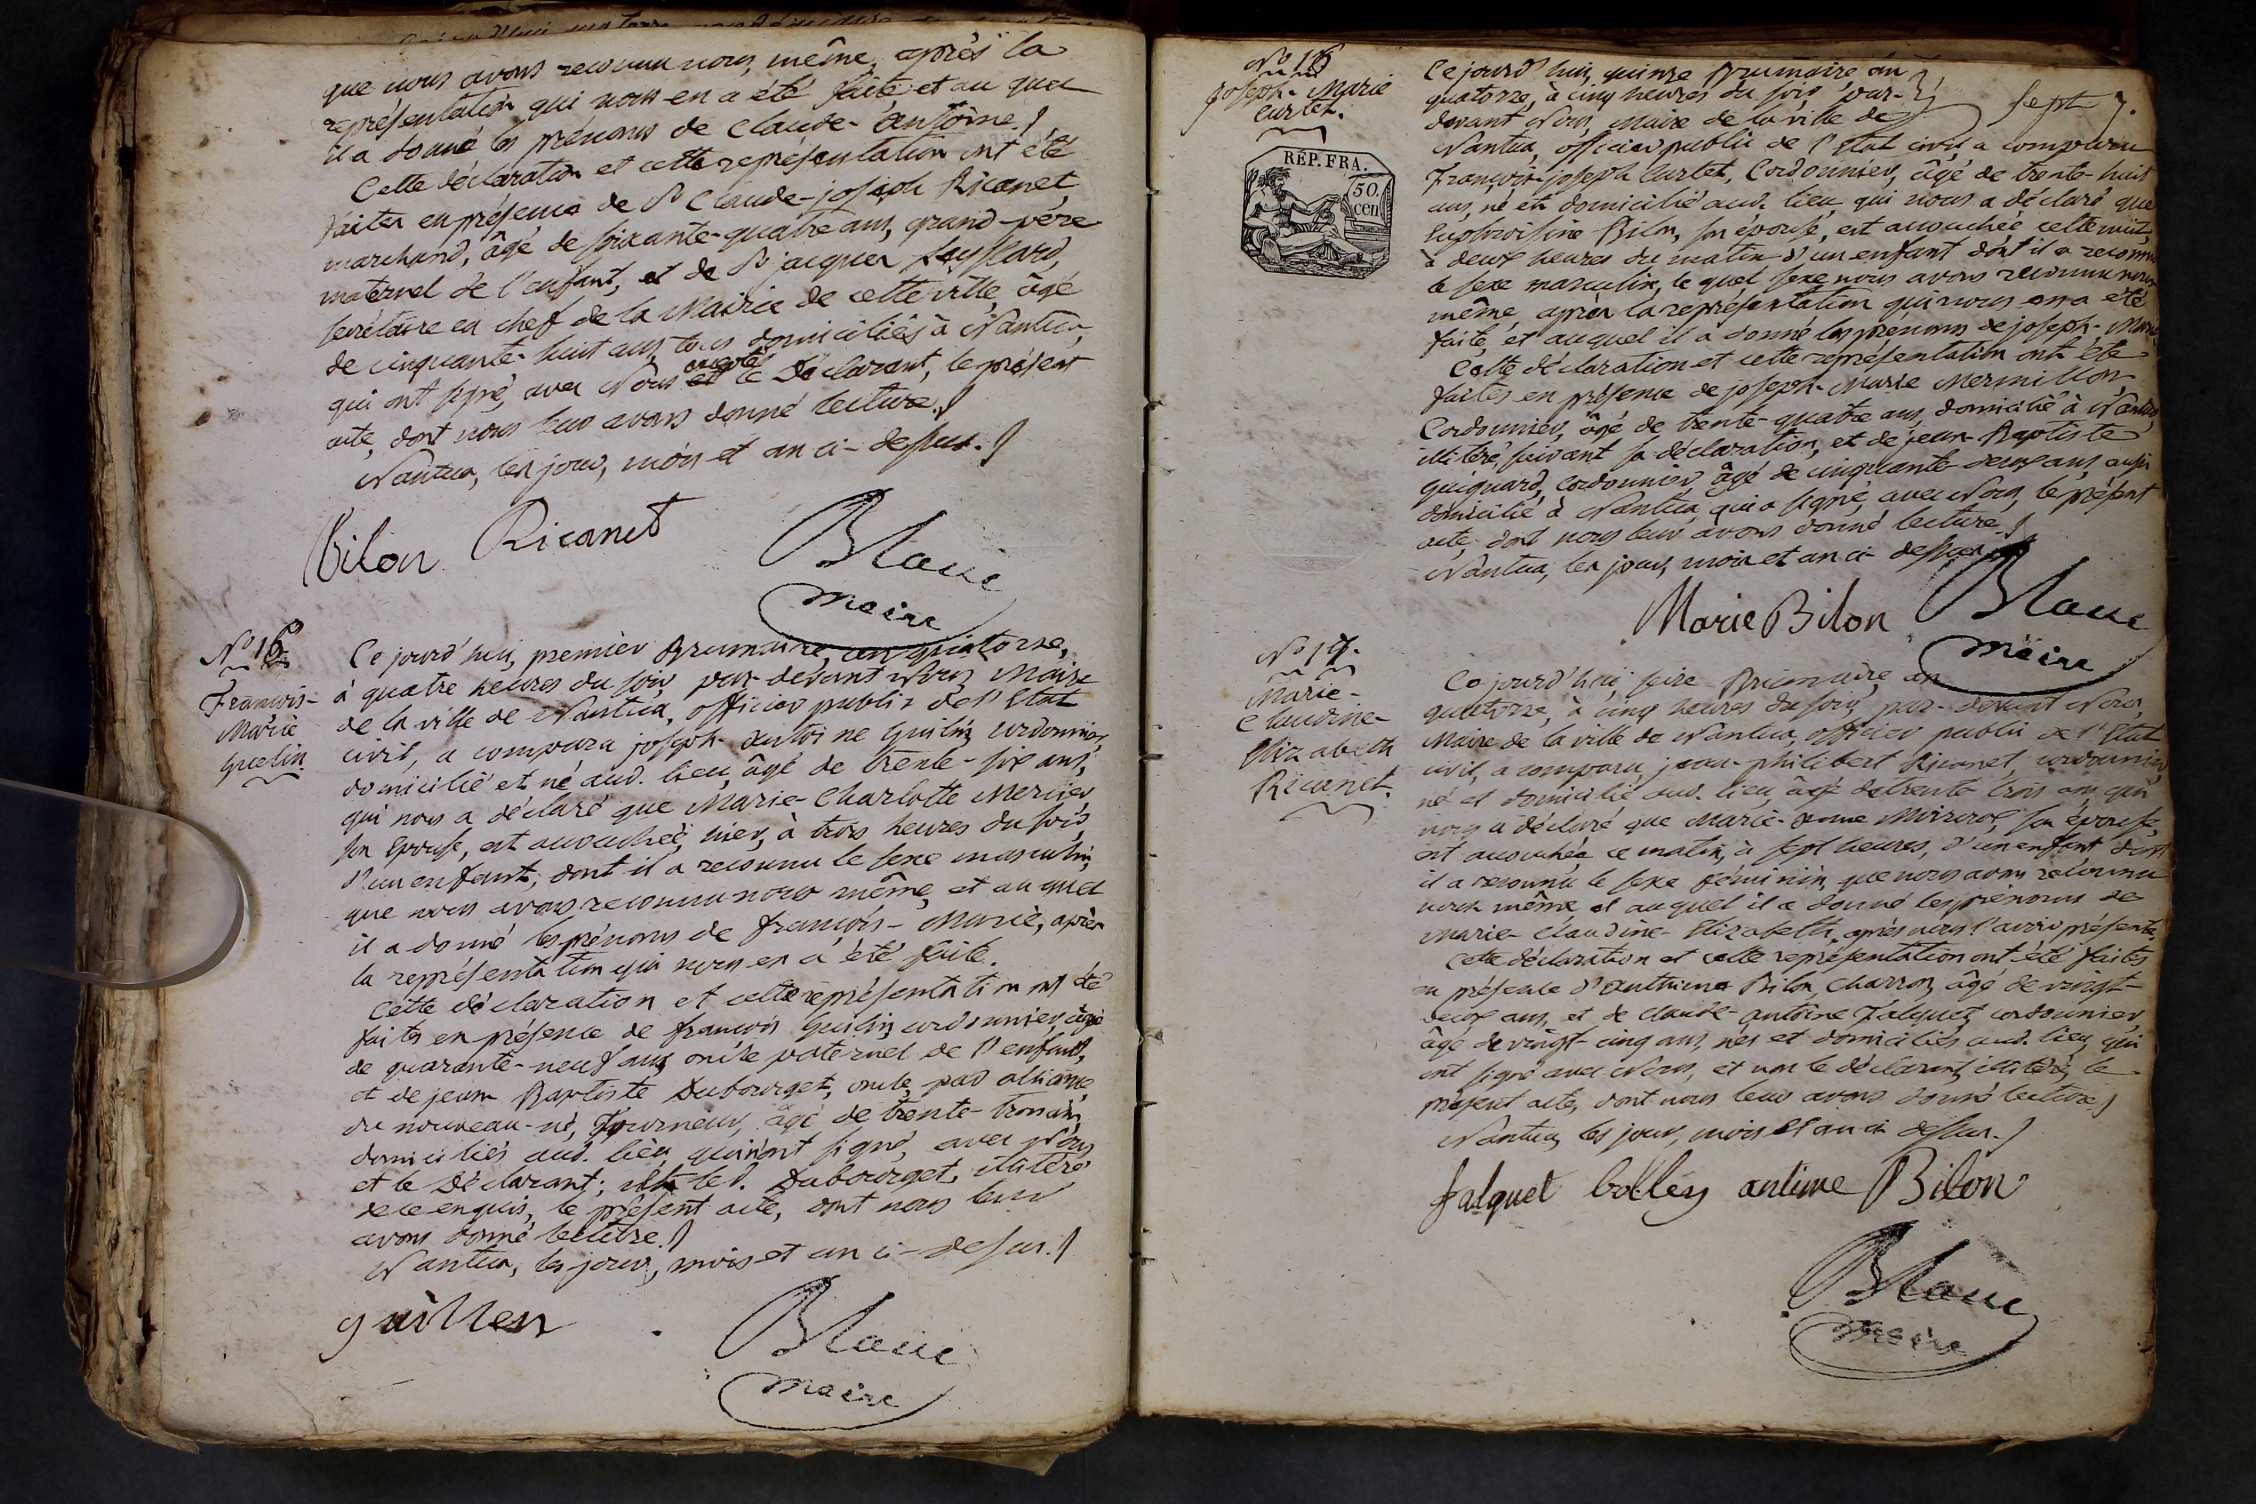 que nous avons reconnu nous même, après la
représentation qui nous en a été faite et au quel
il a donné les prénoms de Claude-Antoine./
Cette déclaration et cette représentation ont été
faites en présence de Sr Claude-joseph Ricanet,
marchand, âgé de soixante-quatre ans, grand-père
maternel de l'enfant, et de Sr jacques
secrétaire en chef de la Mairie de cette ville, âgé
de cinquante-huit ans, tous domiciliés à Nantua,
qui ont signé, avec Nous et le Déclarant, le présent
acte, dont nous leur avons donné lecture./
Nantua, les jour, mois et an ci-dessus./
Bilon Ricanet Blanc
maire
No 16
François-
Marie
Guelin
Ce jourd'hui, premier Brumaire, an quatorze,
à quatre heures du soir, par-devant Nous, Maire
de la ville de Nantua, officier public de l'Etat
civil, a comparu joseph-Antoine Guilin, cordonnier,
domicilié et né aud. lieu, âgé de trente-six ans,
qui nous a déclaré que Marie-Charlotte Mercier
son Epouse, est accouchée, hier, à trois heures du soir,
d'un enfant, dont il a reconnu le sexe masculin,
que nous avons reconnu nous même, et au quel
il a donné les prénoms de françois-Marie, après
la représentation qui nous en a été faite.
Cette déclaration et cette représentation ont été
faites en présence de françois Guilin, cordonnier, âgé
de quarante-neuf ans, oncle paternel de l'enfant,
et de jean Baptiste Dubourget, oncle, par alliance,
du nouveau-né, Tourneur, âgé de trente-trois ans,
domiciliés aud. lieu, qui ont signé, avec Nous
et le Déclarant; led. Dubourget, illitéré
de ce enquis, le présent acte, dont nous leur
avons donné lecture./
Nantua, les jour, mois et an ci-dessus./
guillen Blanc
maire
No 18
Joseph-Marie
Curtet.
RÉP. FRA.
50.
cen
Ce jourd'hui, quinze Brumaire an
quatorze, à cinq heures du soir, par-
devant Nous, Maire de la ville de
sept 7.
Nantua, officier public de l'Etat civil a comparu
François-joseph Curtet, Cordonnier, âgé de trente-huit
ans, né et domicilié aud. lieu, qui nous a déclaré que
Euphroisine Bilon, son épouse, est accouchée cette nuit,
à deux heures du matin d'un enfant dont il a reconnu
le sexe masculin, le quel sexe nous avons reconnu nous
même, après la représentation qui nous en a été
faite, et auquel il a donné les prénoms de joseph-Marie
Cette déclaration et cette représentation ont été
faites en présence de joseph-Marie Mermillon,
Cordonnier, âgé de trente-quatre ans, domicilié à Nantua,
illitéré, suivant sa déclaration, et de jean-Baptiste
Guignard, Cordonnier, âgé de cinquante-deux ans, aussi
domicilié à Nantua, qui a signé, avec Nous, le présent
acte, dont nous leur avons donné lecture./
Nantua, les jour, mois et an ci-dessus./
Marie Bilon Blanc
maire
No 19.
Marie-
Claudine-
Elizabeth
Ricanet.
Ce jourd'hui, seize Brumaire an
quatorze, à cinq heures du soir, par-devant Nous,
Maire de la ville de Nantua, officier public de l'Etat
civil, a comparu, jean-philibert Ricanet, cordonnier,
né et domicilié aud. lieu, âgé de trente trois ans, qui
nous a déclaré que Marie-Anne son épouse,
est accouchée ce matin, à sept heures, d'un enfant dont
il a reconnu le sexe féminin, que nous avons reconnu
nous même et auquel il a donné les prénoms de
Marie-Claudine-Elizabeth, après nous l'avoir présenté.
Cette déclaration et cette représentation ont été faites
en présence d'Anthime Bilon, Charron, âgé de vingt-
deux ans, et de Claude-Antoine Falquet, cordonnier,
âgé de vingt-cinq ans, nés et domiciliés aud. lieu, qui
ont signé avec Nous, et non le déclarant, illitéré, le
présent acte, dont nous leur avons donné lecture./
Nantua, les jour, mois et an ci-dessus./
falquet antime Bilon
Blanc
maire